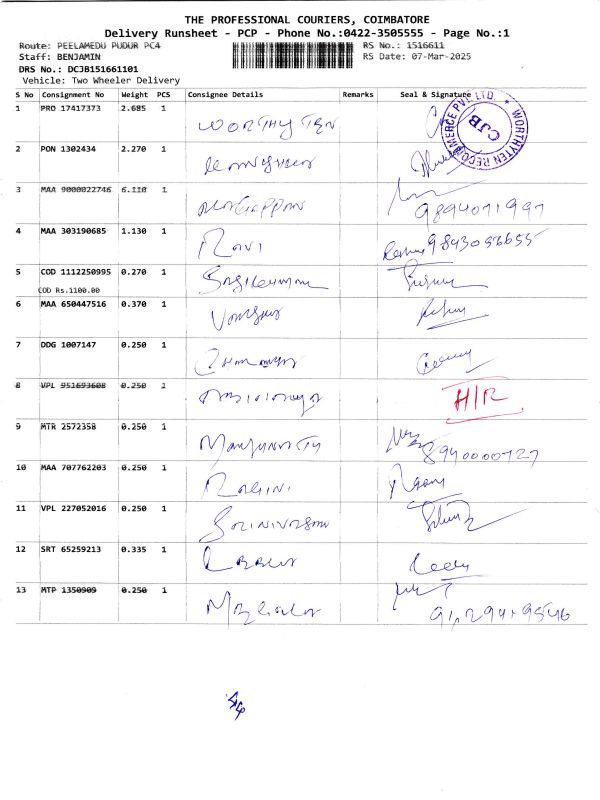 THE PROFESSIONAL COURIERS, COIMBATORE
Delivery Runsheet - PCP - Phone No.:0422-3505555 - Page No.:1
Route: PEELAMEDU PUDUR PC4 RS No.: 1516611
Staff: BENJAMIN RS Date: 07-Mar-2025
DRS No.: DCJB151661101
Vehicle: Two Wheeler Delivery
S No Consignment No Weight PCS Consignee Details Remarks Seal & Signature
1 PRO 17417373 2.685 1 WORTHYTEN
WORTHYTEN RECOMMERCE PVT. LTD. * CJB
2 PON 1302434 2.270 1
3 MAA 9000022746 6.110 1 9894071997
4 MAA 303190685 1.130 1 RAVI 9843056655
5 COD 1112250995 0.270 1
COD Rs.1100.00
6 MAA 650447516 0.370 1
7 DDG 1007147 0.250 1
8 VPL 951693608 0.250 1 H/R
9 MTR 2572358 0.250 1 8940000727
10 MAA 707762203 0.250 1 RAGINI
11 VPL 227052016 0.250 1
12 SRT 65259213 0.335 1
13 MTP 1350909 0.250 1